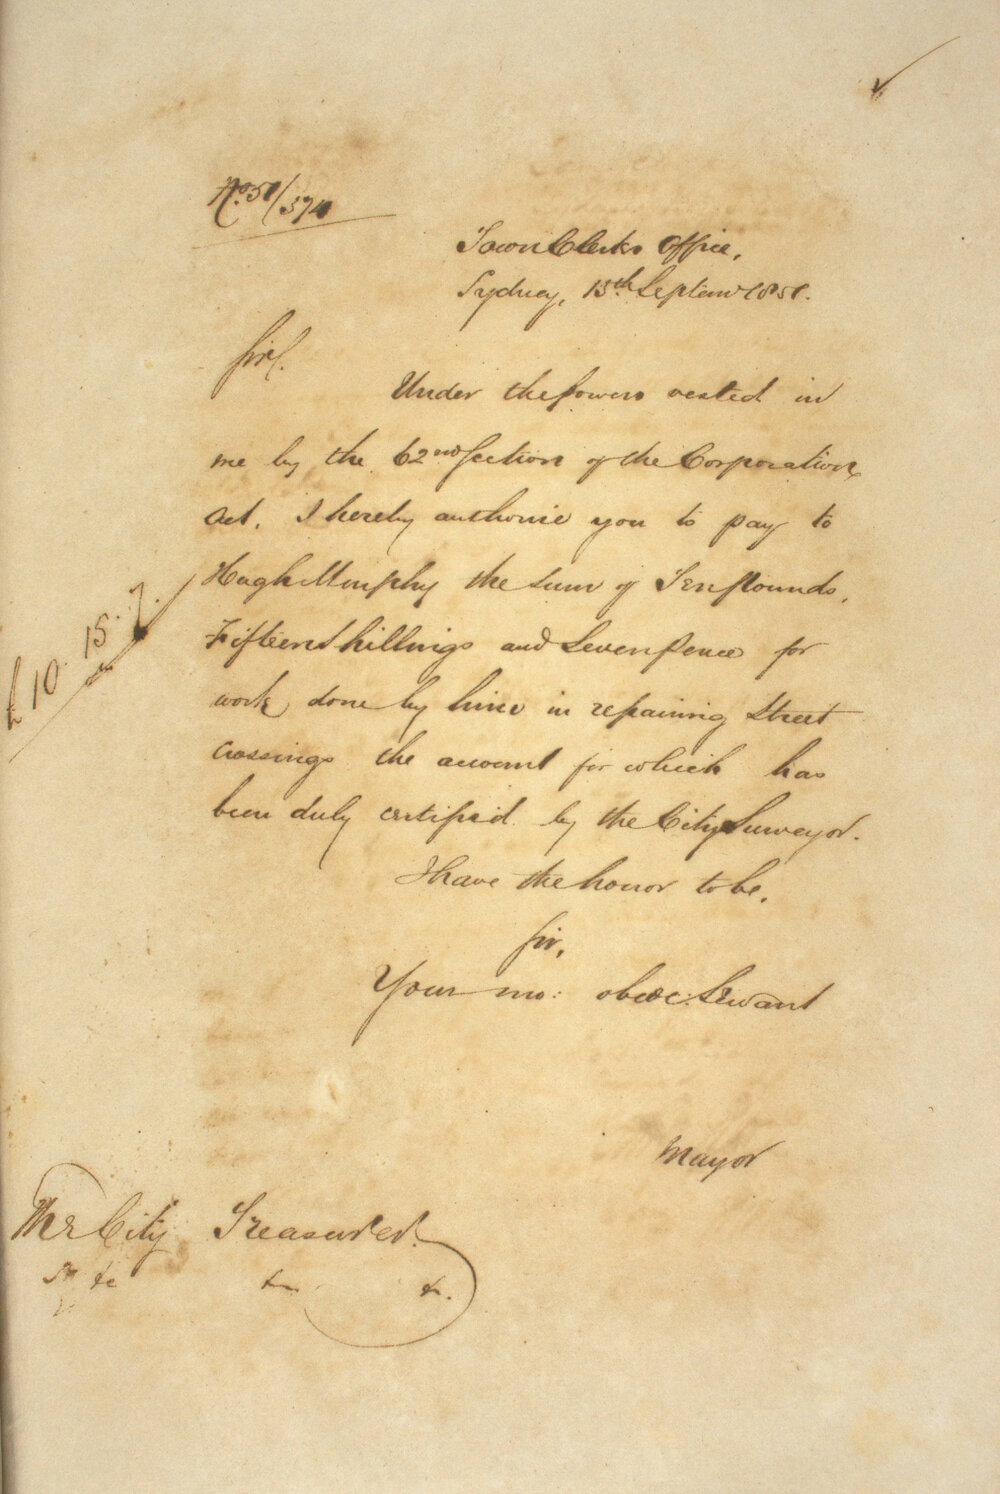 No. 51/374
Town Clerks Office,
Sydney, 13th Septemr 1851.
Sir,
Under the powers vested in
me by the 62nd Section of the Corporation
Act, I hereby authorise you to pay to
Hugh Murphy the sum of Ten Pounds,
£10. 15. 7.
Fifteen Shillings and Seven pence for
work done by him in repairing Street
crossings the account for which has
been duly certified by the City Surveyor.
I have the honor to be,
Sir,
Your mo: obedt. Servant
Mayor
The City Treasurer.
&c &c &c.